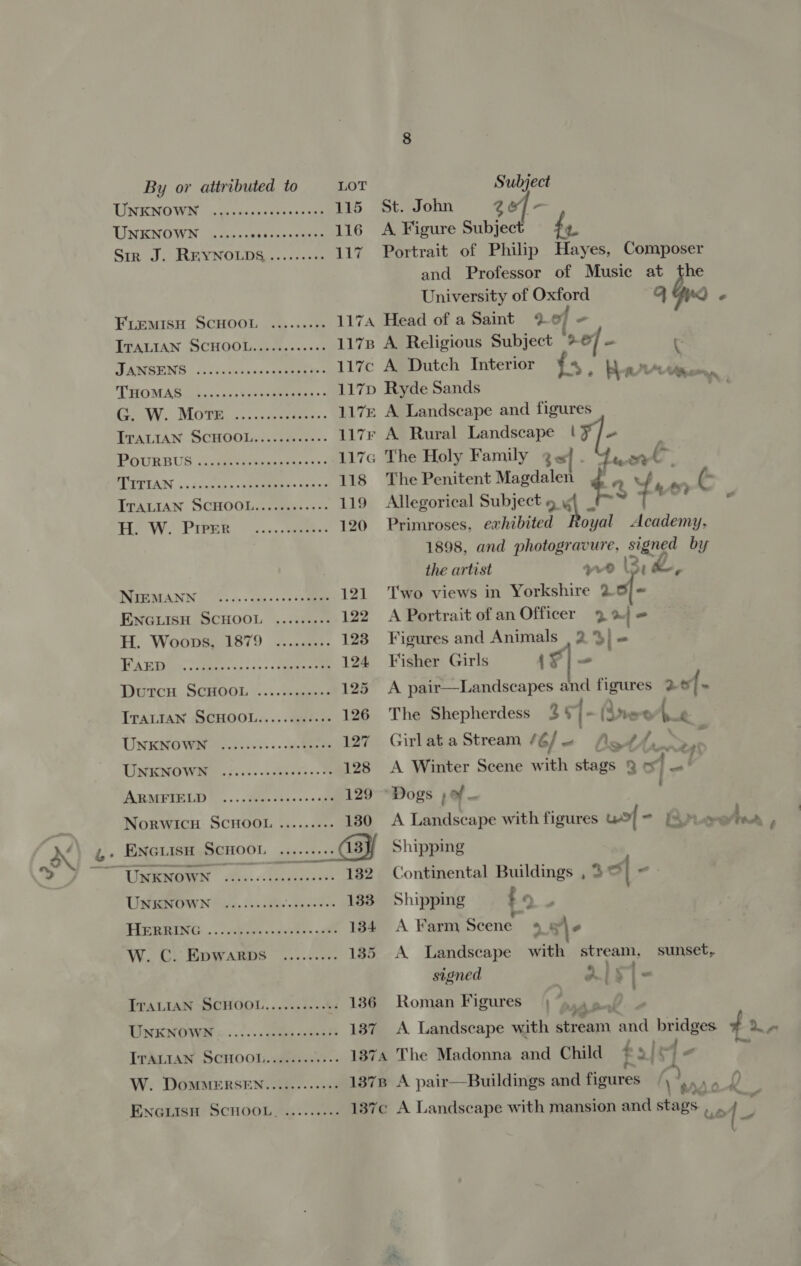 8
By or attributed to LOT Subject
UNKNOWN .................... 115 St. John 20/-
UNKNOWN .................... 116 A Figure Subject £2.
SIR J. REYNOLDS ......... 117 Portrait of Philip Hayes, Composer
and Professor of Music at the
University of Oxford 9 gns
FLEMISH SCHOOL ......... 117A Head of a Saint 20/-
ITALIAN SCHOOL............ 117B A Religious Subject 20/-
JANSENS ..................... 117C A Dutch Interior £3,
THOMAS ..................... 117D Ryde Sands
G. W. MOTE ............... 117E A Landscape and figures
ITALIAN SCHOOL............ 117F A Rural Landscape 18/-
POURBUS ..................... 117G The Holy Family 30/.
TITIAN ........................ 118 The Penitent Magdalen £2
ITALIAN SCHOOL............ 119 Allegorical Subject
H. W. PIPER ............... 120 Primroses, exhibited Royal Academy,
1898, and photogravure, signed by
the artist no Bid,
NIEMANN ..................... 121 Two views in Yorkshire 20/-
ENGLISH SCHOOL ......... 122 A Portrait of an Officer 22/-
H. WOODS, 1879 ......... 123 Figures and Animals 23/-
FAED ........................ 124 Fisher Girls 18/-
DUTCH SCHOOL ............ 125 A pair—Landscapes and figures 20/-
ITALIAN SCHOOL............ 126 The Shepherdess 35/-
UNKNOWN .................... 127 Girl at a Stream 16/-
UNKNOWN .................... 128 A Winter Scene with stags 30/-
ARMFIELD .................. 129 Dogs
NORWICH SCHOOL ......... 130 A Landscape with figures
ENGLISH SCHOOL ......... 131 Shipping
UNKNOWN .................... 132 Continental Buildings, 30/-
UNKNOWN .................... 133 Shipping £2
HERRING ..................... 134 A Farm Scene
W. C. EDWARDS ......... 135 A Landscape with stream, sunset,
signed 25/-
ITALIAN SCHOOL............ 136 Roman Figures
UNKNOWN .................... 137 A Landscape with stream and bridges £2
ITALIAN SCHOOL............ 137A The Madonna and Child
W. DOMMERSEN............ 137B A pair—Buildings and figures
ENGLISH SCHOOL ......... 137C A Landscape with mansion and stags